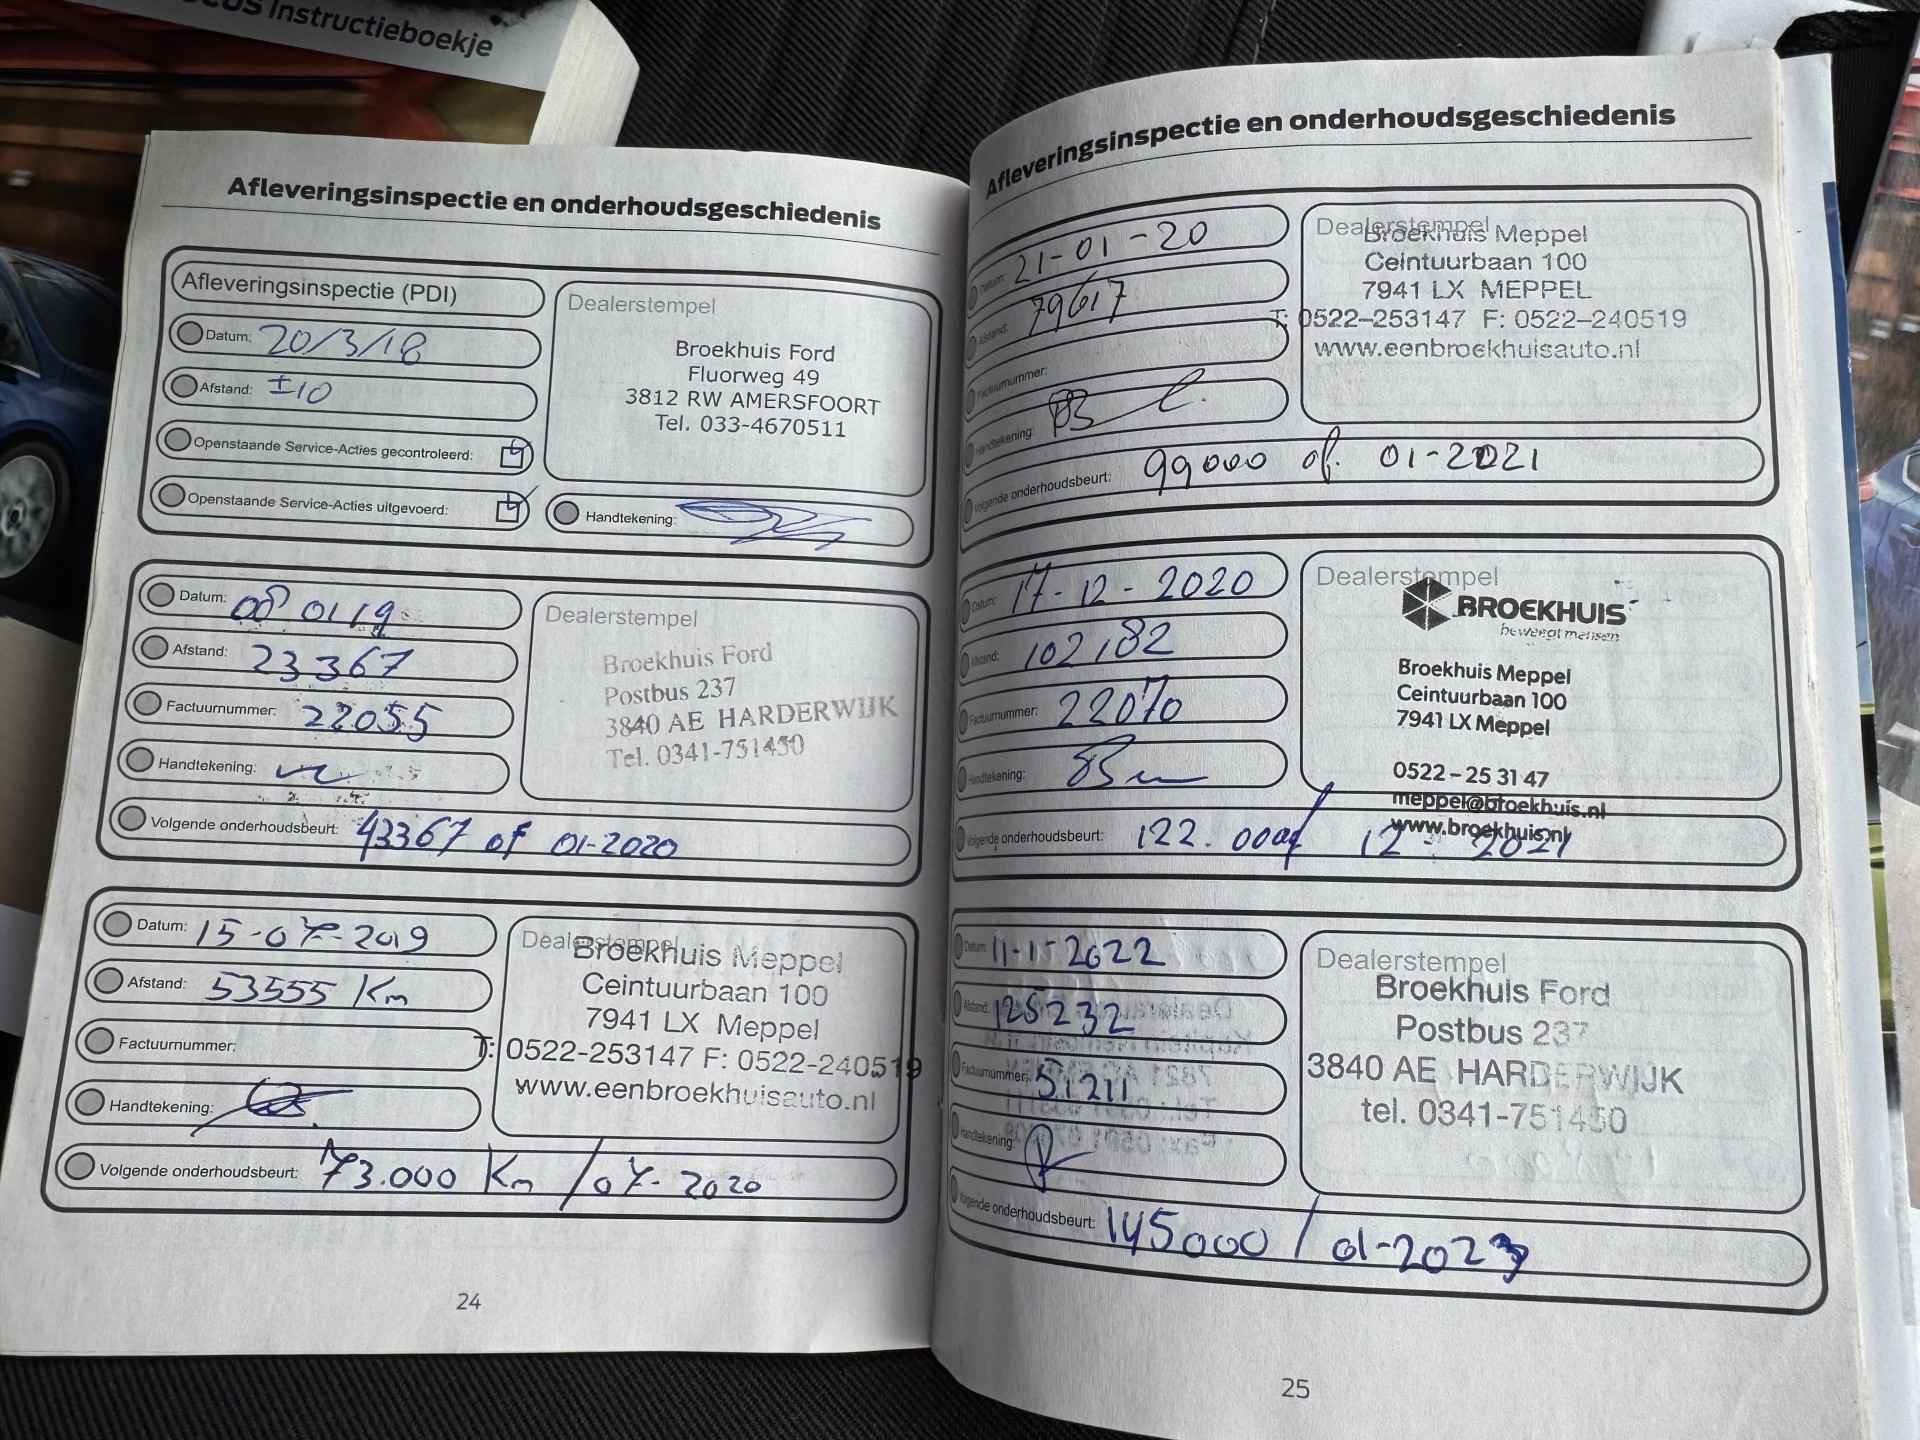 CUS Instructieboekje
Afleveringsinspectie en onderhoudsgeschiedenis
Afleveringsinspectie (PDI)
Datum: 20/3/18
Afstand: ±10
Openstaande Service-Acties gecontroleerd:
Openstaande Service-Acties uitgevoerd:
Dealerstempel
Broekhuis Ford
Fluorweg 49
3812 RW AMERSFOORT
Tel. 033-4670511
Handtekening:
Datum: 08 01 19
Afstand: 23367
Factuurnummer: 22055
Handtekening:
Dealerstempel
Broekhuis Ford
Postbus 237
3840 AE HARDERWIJK
Tel. 0341-751450
Volgende onderhoudsbeurt: 43367 of 01-2020
Datum: 15-07-2019
Afstand: 53555 Km
Factuurnummer:
Handtekening:
Dealerstempel
Broekhuis Meppel
Ceintuurbaan 100
7941 LX Meppel
T: 0522-253147 F: 0522-240519
www.eenbroekhuisauto.nl
Volgende onderhoudsbeurt: 73.000 Km / 07-2020
24
Afleveringsinspectie en onderhoudsgeschiedenis
Datum: 21-01-20
Afstand: 79617
Factuurnummer:
Handtekening:
Dealerstempel
Broekhuis Meppel
Ceintuurbaan 100
7941 LX MEPPEL
T: 0522-253147 F: 0522-240519
www.eenbroekhuisauto.nl
Volgende onderhoudsbeurt: 99000 of. 01-2021
Datum: 17-12-2020
Afstand: 102182
Factuurnummer: 22070
Handtekening:
Dealerstempel
BROEKHUIS
beweegt mensen
Broekhuis Meppel
Ceintuurbaan 100
7941 LX Meppel
0522-25 31 47
meppel@broekhuis.nl
www.broekhuis.nl
Volgende onderhoudsbeurt: 122.000 of 12-2021
Datum: 11-1-2022
Afstand: 125232
Factuurnummer: 51211
Handtekening:
Dealerstempel
Broekhuis Ford
Postbus 237
3840 AE HARDERWIJK
tel. 0341-751450
Volgende onderhoudsbeurt: 145000 / 01-2023
25